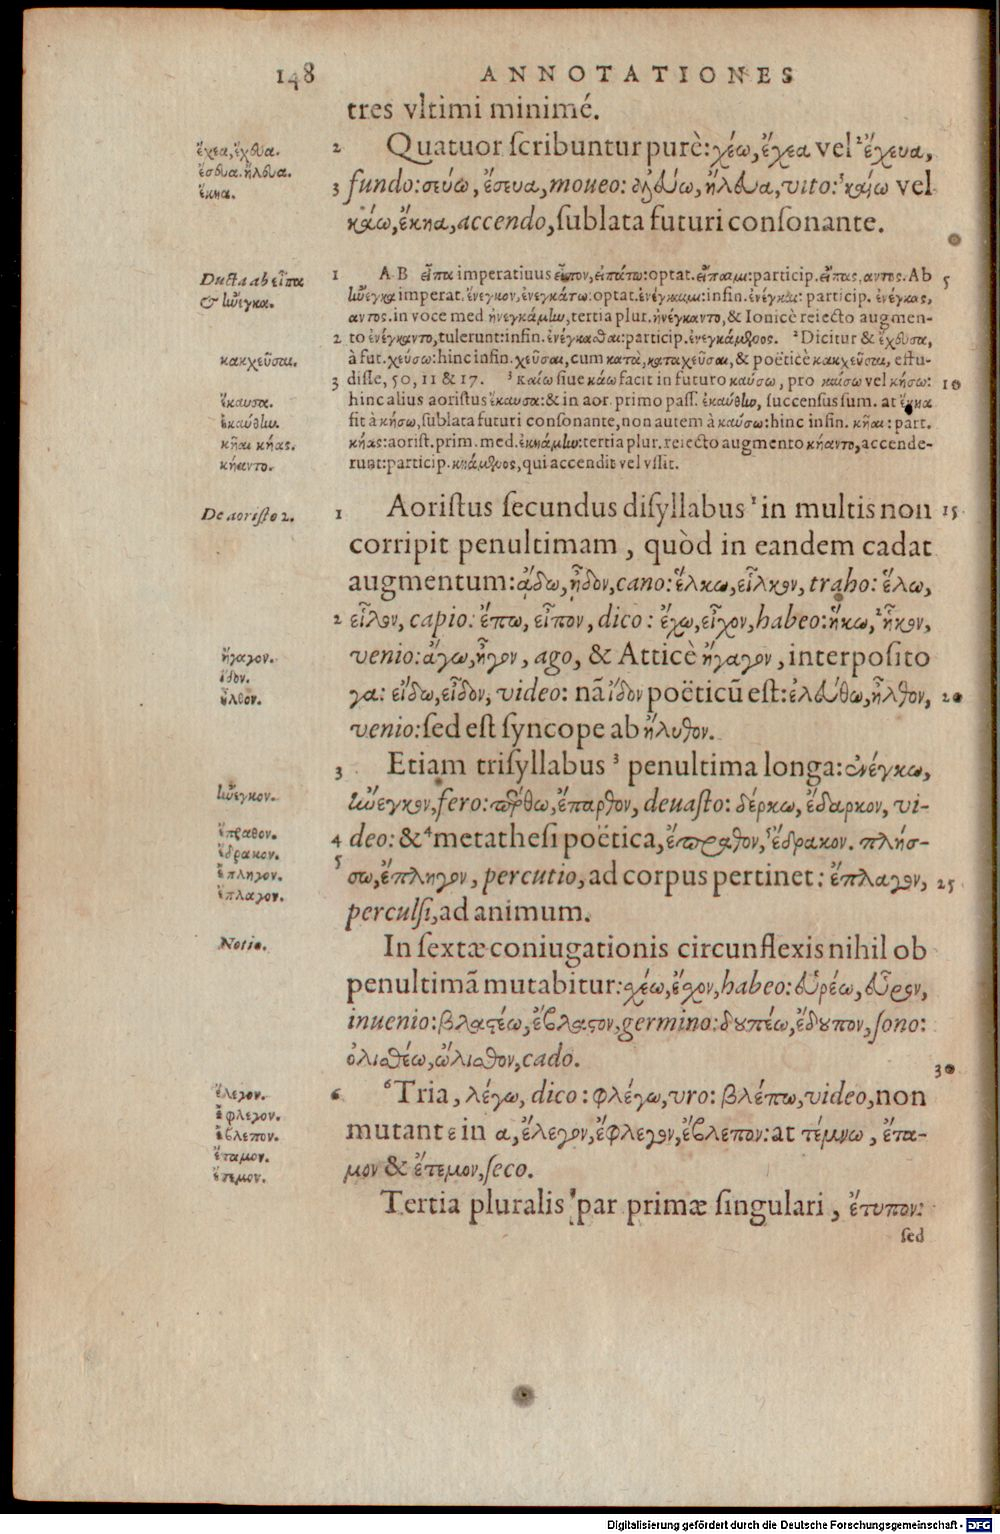 148 ANNOTATIONES
tres vltimi minimé.
ἔχεα, ἔχευα.
ἔσευα. ἤλευα.
ἔκηα.
2 Quatuor ſcribuntur purè: χέω, ἔχεα vel ²ἔχευα,
3 fundo: σεύω, ἔσευα, moueo: ἀλεύω, ἤλευα, vito: ³καίω vel
κάω, ἔκηα, accendo, ſublata futuri conſonante.
Ducta ab εἶπα
& ἤνεγκα.
1 AB εἶπα imperatiuus εἶπον, εἰπάτω: optat. εἴπαιμι: particip. εἴπας, αντος. Ab 5
ἤνεγκα imperat. ἔνεγκον, ἐνεγκάτω: optat. ἐνέγκαιμι: infin. ἐνέγκαι: particip. ἐνέγκας,
αντος. in voce med ἠνεγκάμην, tertia plur. ἠνέγκαντο, & Ionicè reiecto augmen-
2 to ἐνέγκαντο, tulerunt: infin. ἐνέγκασθαι: particip. ἐνεγκάμενος. ²Dicitur & ἔχευσα,
κακχεῦσαι.
à fut. χεύσω: hinc infin. χεῦσαι, cum κατὰ, καταχεῦσαι, & poëticè κακχεῦσαι, effu-
3 diſſe, 50, 11 & 17. ³καίω ſiue κάω facit in futuro καύσω, pro καίσω vel κήσω: 10
ἔκαυσα.
hinc alius aoriſtus ἔκαυσα: & in aor. primo paſſ. ἐκαύθην, ſuccenſus ſum. at ἔκηα
ἐκαύθην.
fit à κήσω, ſublata futuri conſonante, non autem à καύσω: hinc infin. κῆαι: part.
κῆαι κήας.
κήας: aoriſt. prim. med. ἐκηάμην: tertia plur. reiecto augmento κήαντο, accende-
κήαντο.
runt: particip. κηάμενος, qui accendit vel vſſit.
De aoriſto 2.
1 Aoriſtus ſecundus diſyllabus ¹in multis non 15
corripit penultimam, quòd in eandem cadat
augmentum: ᾄδω, ᾖδον, cano: ἕλκω, εἷλκον, traho: ἕλω,
2 εἷλον, capio: ἔπω, εἶπον, dico: ἔχω, εἶχον, habeo: ἥκω, ²ἧκον,
ἤγαγον.
venio: ἄγω, ἦγον, ago, & Atticè ἤγαγον, interpoſito
ἴδον.
ἦλθον.
γα: εἴδω, εἶδον, video: nā ἴδον poëticū eſt: ἐλεύθω, ἦλθον, 20
venio: ſed eſt ſyncope ab ἤλυθον.
3 Etiam triſyllabus ³penultima longa: ἐνέγκω,
ἤνεγκον.
ἤνεγκον, fero: πέρθω, ἔπαρθον, deuaſto: δέρκω, ἔδαρκον, vi-
ἔπραθον.
ἔδρακον.
4 deo: & ⁴metatheſi poëtica, ἔπραθον, ⁵ἔδρακον. πλήσ-
ἔπληγον.
ἔπλαγον.
5 σω, ἔπληγον, percutio, ad corpus pertinet: ἔπλαγον, 25
perculſi, ad animum.
Notio.
In ſextæ coniugationis circunflexis nihil ob
penultimā mutabitur: χέω, ἔχον, habeo: εὑρέω, εὗρον,
inuenio: βλαστέω, ἔβλαστον, germino: δουπέω, ἔδουπον, ſono:
ὀλισθέω, ὤλισθον, cado. 30
ἔλεγον.
6 ⁶Tria, λέγω, dico: φλέγω, vro: βλέπω, video, non
ἔφλεγον.
ἔβλεπον.
mutant ε in α, ἔλεγον, ἔφλεγον, ἔβλεπον: at τέμνω, ἔτα-
ἔταμον.
ἔτεμον.
μον & ἔτεμον, ſeco.
Tertia pluralis par primæ ſingulari, ἔτυπον:
ſed
Digitalisierung gefördert durch die Deutsche Forschungsgemeinschaft - DFG